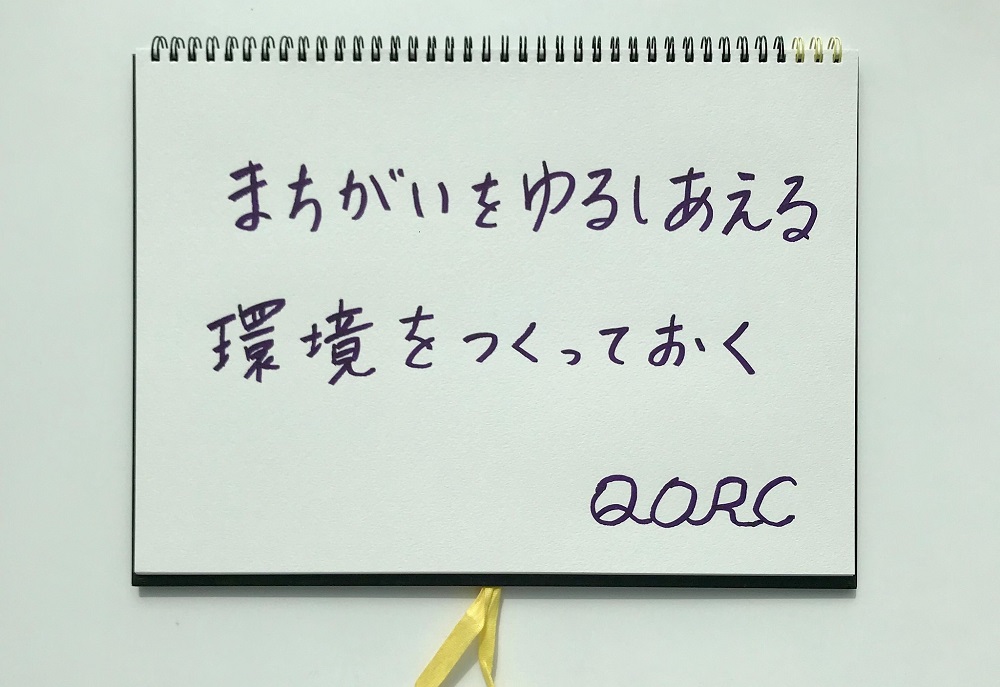 まちがいをゆるしあえる
環境をつくっておく
QORC